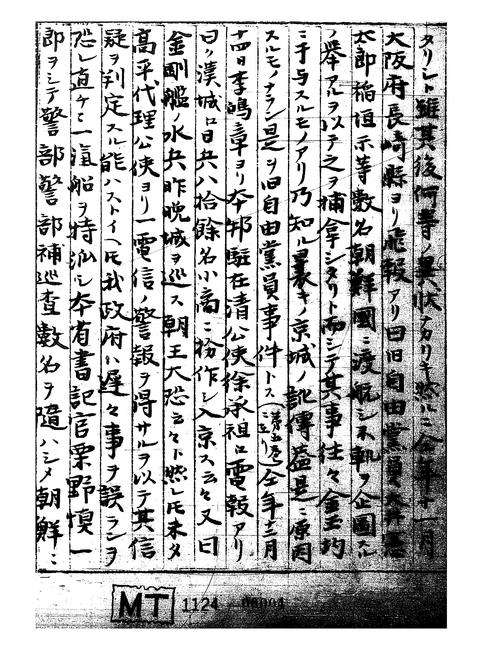 タリシト雖其後何等ノ異状アカリキ然ルニ今年十一月
大阪府長崎縣ヨリ飛報アリ曰旧自由黨員大井憲
太郎稲垣示等数名朝鮮國ニ渡航シ不軌ヲ企圖スル
ノ挙アルヲ以テ之ヲ捕拿シタリト而シテ其事往々金玉均
ニ干与スルモノアリ乃知ル曩キノ京城ノ訛傳蓋是ニ原因
スルモノナラン是ヲ旧自由黨員事件トス
仝年十二月
十四日李鳴章ヨリ本邦駐在清公使徐承祖ニ電報アリ
曰ク漢城ニ日兵八拾餘名小商ニ扮作シ入京ス云々又曰
金剛艦ノ水兵昨晩城ヲ巡ス朝王大恐云々ト然レ𪜈未タ
高平代理公使ヨリ一電信ノ警報ヲ得サルヲ以テ其信
疑ヲ判定スル能ハストイヘ𪜈我政府ハ遅々事ヲ誤ランヲ
恐レ直チニ一滊船ヲ特派シ本省書記官栗野慎一
郎ヲシテ警部警部補巡査数名ヲ随ハシメ朝鮮ニ
MT 1124 00004